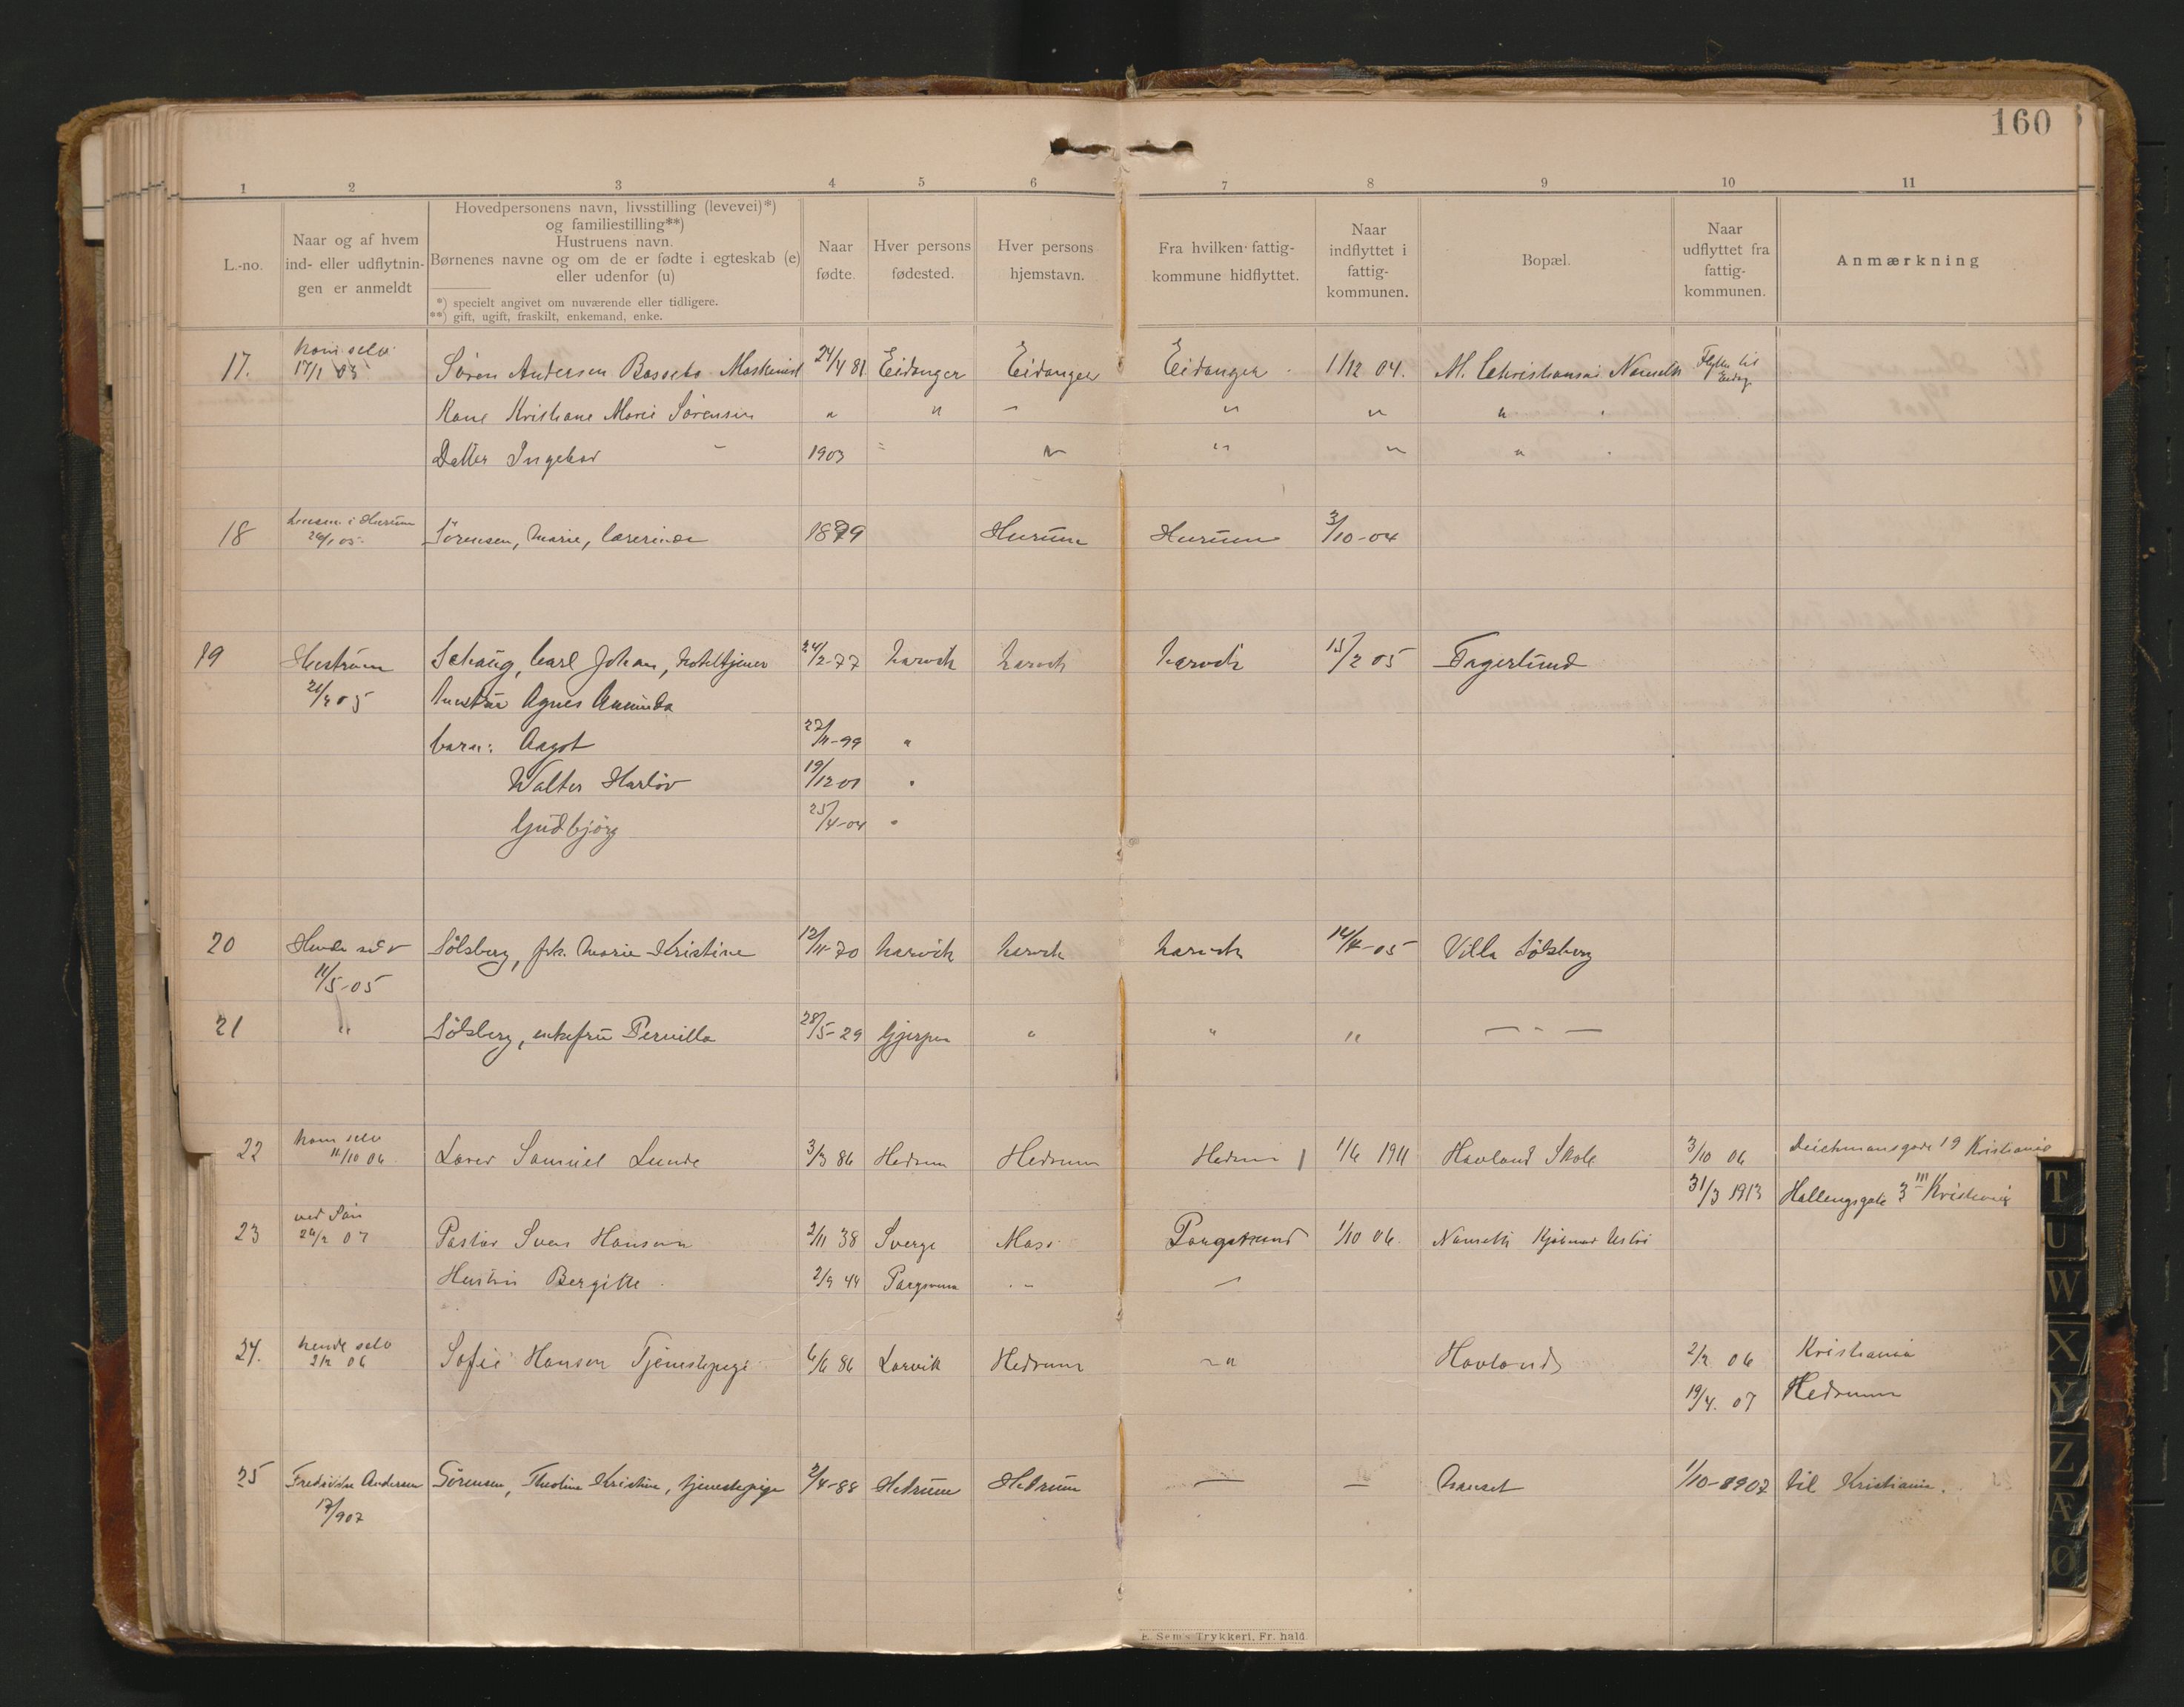 160
1 2 3 4 5 6 7 8 9 10 11
L.-no.
Naar og af hvem
ind- eller udflytnin-
gen er anmeldt
Hovedpersonens navn, livsstilling (levevei)*)
og familiestilling**)
Hustruens navn.
Børnenes navne og om de er fødte i egteskab (e)
eller udenfor (u)
*) specielt angivet om nuværende eller tidligere.
**) gift, ugift, fraskilt, enkemand, enke.
Naar
fødte.
Hver persons
fødested.
Hver persons
hjemstavn.
Fra hvilken fattig-
kommune hidflyttet.
Naar
indflyttet i
fattig-
kommunen.
Bopæl.
Naar
udflyttet fra
fattig-
kommunen.
Anmærkning
ham selv
17. 17/1 05 Søren Andersen Maskinist 24/4 81 Eidanger Eidanger Eidanger 1/12 04. M. Christiansen Flytter til
Kone Kristiane Marie Sørensen " " – " " "
Datter Ingebor – 1903 " " " " "
i Hurum
18 Sörensen, Marie, lærerinde 1879 Hurum Hurum 3/10-04
19 Hustruen Schaug, Carl Johan, hoteltjener 24/2-77 Larvik Larvik Larvik 15/2 05 Fagerlund
hustru Agnes
barn: Aagot 22/11-99 "
Walter 19/12 01 "
Gudbjörg 25/4-04 "
20 Hende selv Sölsberg, frk. Marie Kristine 12/11-70 Larvik Larvik Larvik 14/4-05 Villa Sölsberg
11/5-05
21 " Sölsberg, enkefru Pernilla 28/5-29 Gjerpen " " " – " –
22 ham selv Lærer Samuel Lunde 3/3 86 Hedrum Hedrum Hedrum 1/6 1911 Havland Skole 3/10 06 Deichmansgade 19 Kristiania
11/10 06
31/3 1913 3 III Kristiania
23 Pastor Sven Hansen 2/11 38 Sverge 1/10 06.
Hustru Bergitte 2/9 44
24. hende selv Sofie Hansen Tjenestepige 6/6 86 Larvik Hedrum – " Havland 2/2 06 Kristiania
2/2 06
19/4. 07 Hedrum
25 Andersen Sörensen, Kristine, tjenestepige 2/4-88 Hedrum Hedrum – – 1/10-1907 til Kristiania.
E. Sem's Trykkeri, Fr. hald.
T
U
W
X
Y
Z
Æ
Ø